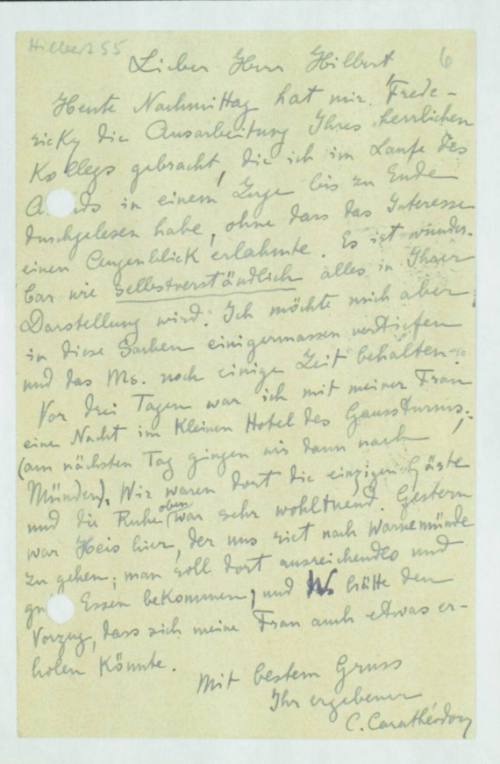 Hilbert 55
6
Lieber Herr Hilbert
Heute Nachmittag hat mir Frede-
ricky die Ausarbeitung Ihres herrlichen
Kollegs gebracht, die ich im Laufe des
A nds in einem Zuge bis zu Ende
durchgelesen habe, ohne dass das Interesse
einen Augenblick erlahmte. Es ist wunder-
bar wie selbstverständlich alles in Ihrer
Darstellung wird. Ich möchte mich aber
in diese Sachen einigermassen vertiefen
und das Ms. noch einige Zeit behalten
Vor drei Tagen war ich mit meiner Frau
eine Nacht im kleinen Hotel des Gaussturms;
(am nächsten Tag gingen wir dann nach
Münden). Wir waren dort die einzigen Gäste
und die Ruhe oben war sehr wohltuend. Gestern
war Heis hier, der uns riet nach Warnemünde
zu gehen; man soll dort ausreichendes und
gu Essen bekommen, und hätte den
Vorzug, dass sich meine Frau auch etwas er-
holen könnte.
Mit bestem Gruss
Ihr ergebener
C. Carathéodory